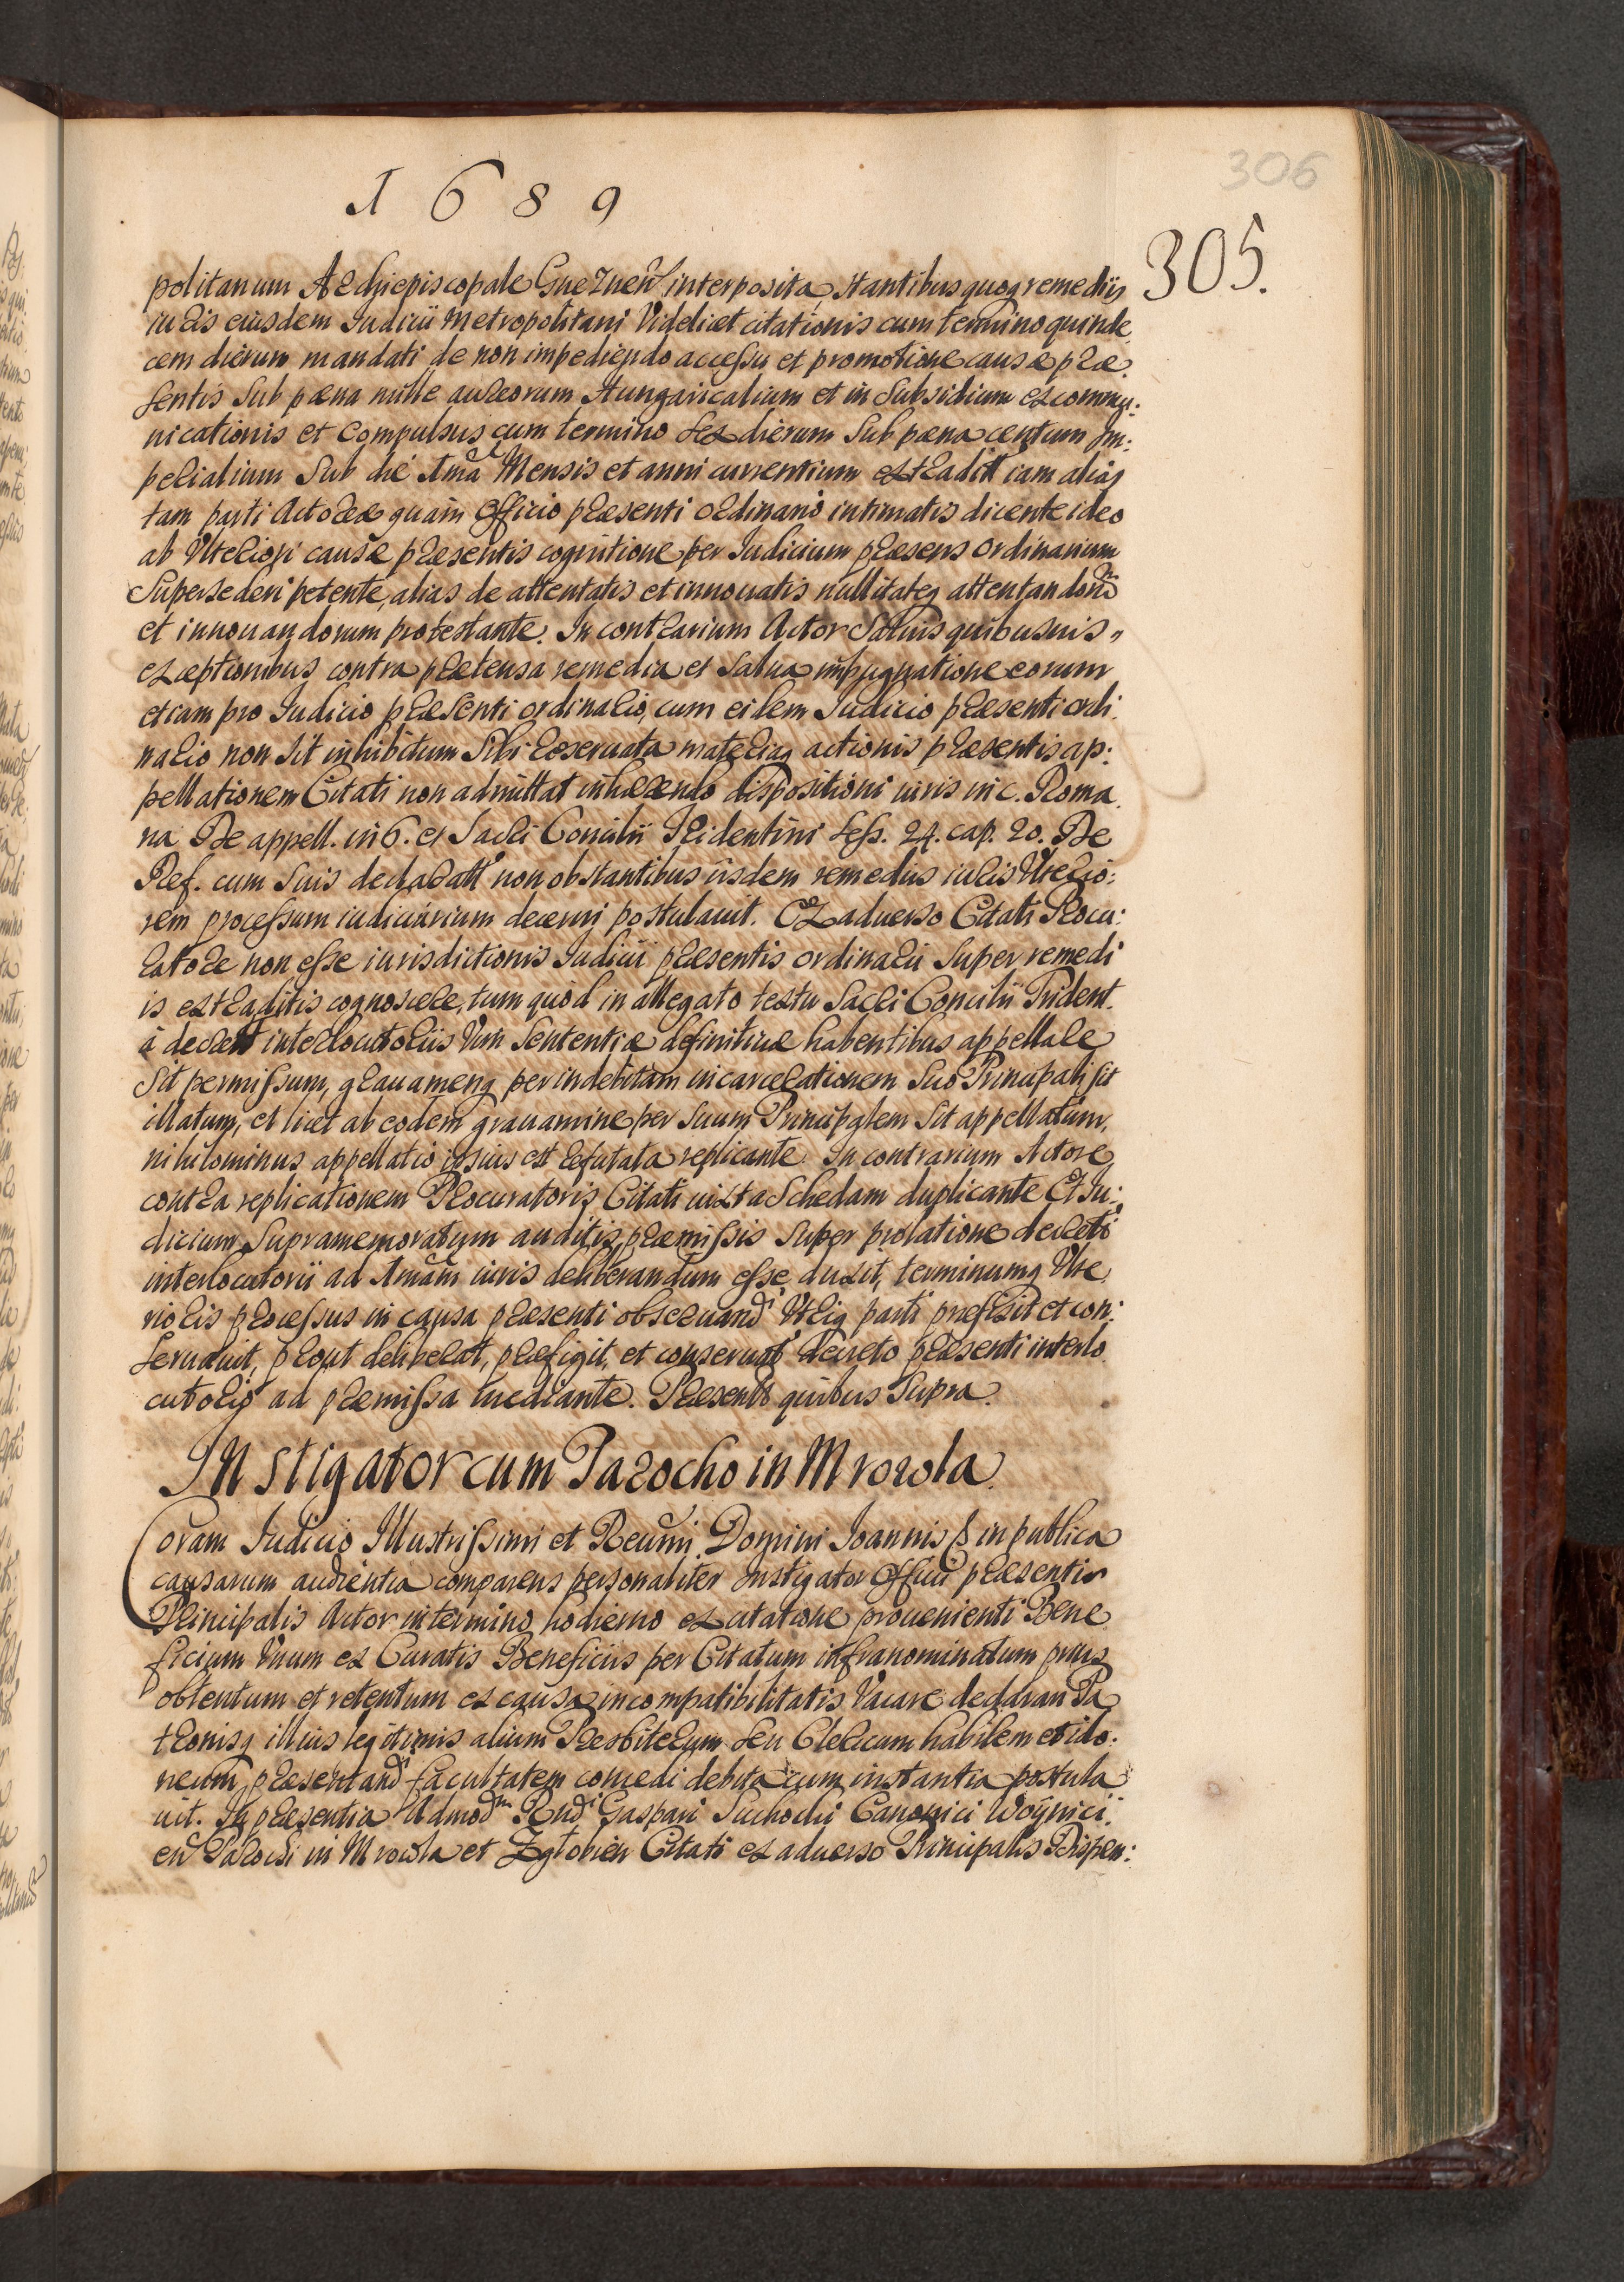 306
1689
305.
politanum Archiepiscopale Gneznen̄ interposita, stantibus quoq remedijs
iuris eiusdem Iudicii Metropolitani Videlicet citationis cum termino quinde
cem dierum mandati de non impediendo accessu et promotione causæ præ
sentis Sub pæna mille aureorum Hungaricalium et in Subsidium excommu:
nicationis et Compulsus cum termino Sex dierum Sub pæna centum Im:
perialium Sub die Ima Mensis et anni currentium extradit iam alias
tam parti Actoreæ quam Officio præsenti ordinario intimatis dicente ideo
ab Vlteriori causæ præsentis cognitione per Iudicium præsens Ordinarium
Supersederi petente, alias de attentatis et innouatis nullitateq attentandorum
et innouandorum protestante. In contrarium Actor Saluis quibusuis
exceptionibus contra prætensa remedia et Salua impugnatione eorum
etiam pro Iudicio præsenti ordinario, cum eidem Iudicio præsenti ordi
nario non sit inhibitum Sibi reseruata materiaq actionis præsentis ap:
pellationem Citati non admittat inhærendo dispositioni iuris in c. Roma
na De appell. in 6. et Sacri Concilii Tridentini Sess. 24. cap. 20. De
Ref. cum Suis declaratt non obstantibus iisdem remediis iuris Vlterio:
rem processum iudiciarium decerni postulauit. Ex aduerso Citati Procu:
ratore non esse iurisdictionis Iudicii præsentis ordinarii Super remedi
is extraditis cognoscere, tum quòd in allegato textu Sacri Concilii Trident.
à decret interlocutoriis Vim Sententiæ definitiuæ habentibus appellare
Sit permissum, grauamenq per indebitam incarcerationem Suo Principali sit
illatum, et licet ab eodem grauamine per Suum Principalem Sit appellatum,
nihilominus appellatio ipsius est refutata replicante. In contrarium Actore
contra replicationem Procuratoris Citati iuxta Schedam duplicante Et Iu:
dicium Supramemoratum auditis præmissis Super prolatione decreti
interlocutorii ad Imam iuris deliberandum esse duxit, terminumq Vlte
rioris processus in causa præsenti obseruandi Vtriq parti præfixit et con:
seruauit, prout deliberat, præfigit, et conseruat decreto præsenti interlo
cutorio ad præmissa mediante. Præsentt quibus Supra.
Instigator cum Parocho in Mrowla.
Coram Iudicio Illustrissimi et Reu͠mi Domini Ioannis ß in publica
causarum audientia comparens personaliter Instigator Officii præsentis
Principalis Actor in termino hodierno ex citatione prouenienti Bene
ficium Vnum ex Curatis Beneficiis per Citatum infranominatum prius
obtentum et retentum ex causa incompatibilitatis Vacare declarari Pa
tronisq illius legitimis alium Presbiterum seu Clericum habilem et ido:
neum præsentandi facultatem concedi debita cum instantia postula
uit. In præsentia Admod^m Rnd^i Gaspari Suchocki Canonici Woynici:
en̄ Parochi in Mrowla et Zgłobien Citati ex aduerso Principalis Dispen: